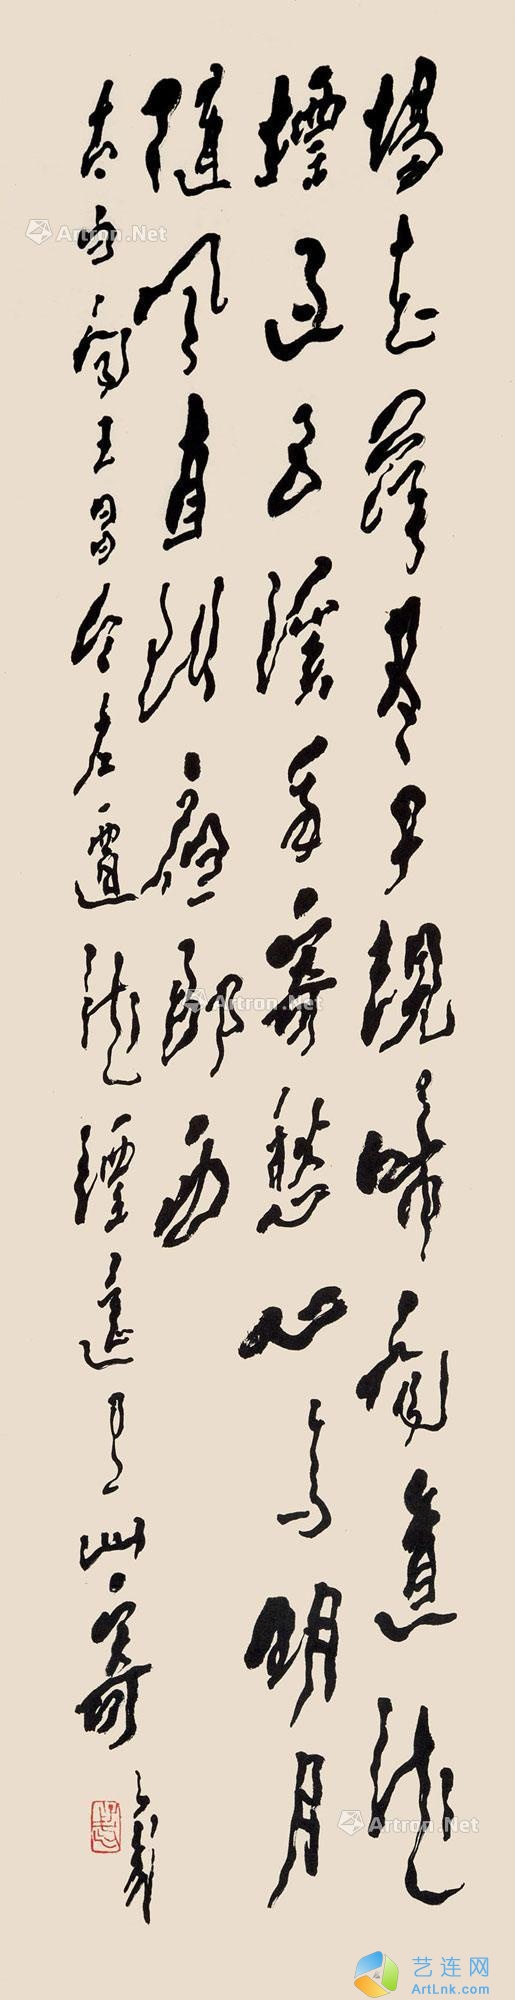 楊花落盡子規啼聞道龍
標過五溪我寄愁心與明月
隨風直到夜郎西
太白聞王昌令左遷龍標遙有此寄
Artron.Net
Artron.Net
Artron.Net
艺连网
ArtLnk.com